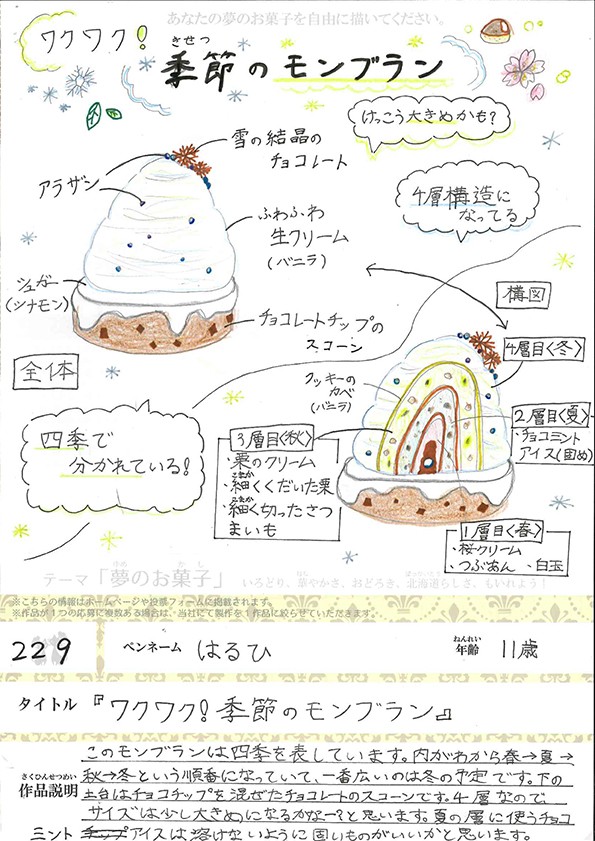 あなたの夢のお菓子を自由に描いてください。
ワクワク!
きせつ
季節のモンブラン
けっこう大きめかも?
雪の結晶の
チョコレート
アラザン
4層構造に
なってる
ふわふわ
生クリーム
(バニラ)
シュガー
(シナモン)
チョコレートチップの
スコーン
構図
4層目<冬>
全体
クッキーの
カベ
(バニラ)
2層目<夏>
・チョコミント
アイス(固め)
四季で
分かれている!
3層目<秋>
・栗のクリーム
こまか
・細くくだいた栗
こまか
・細く切ったさつ
まいも
1層目<春>
・桜クリーム
・つぶあん ・白玉
ゆめ かし
テーマ「夢のお菓子」
いろどり、華やかさ、おどろき、北海道らしさ、もいれよう!
※こちらの情報はホームページや投票フォームに掲載されます。
※作品が1つの応募に複数ある場合は、当社にて製作を1作品に絞らせていただきます。
229 ペンネーム はるひ
ねんれい
年齢 11歳
タイトル 『ワクワク!季節のモンブラン』
さくひんせつめい
作品説明
このモンブランは四季を表しています。内がわから春→夏→
秋→冬という順番になっていて、一番広いのは冬の予定です。下の
土台はチョコチップを混ぜたチョコレートのスコーンです。4層なので、
サイズは少し大きめになるかなー?と思います。夏の層に使うチョコ
ミント
チップアイスは溶けないように固いものがいいかと思います。